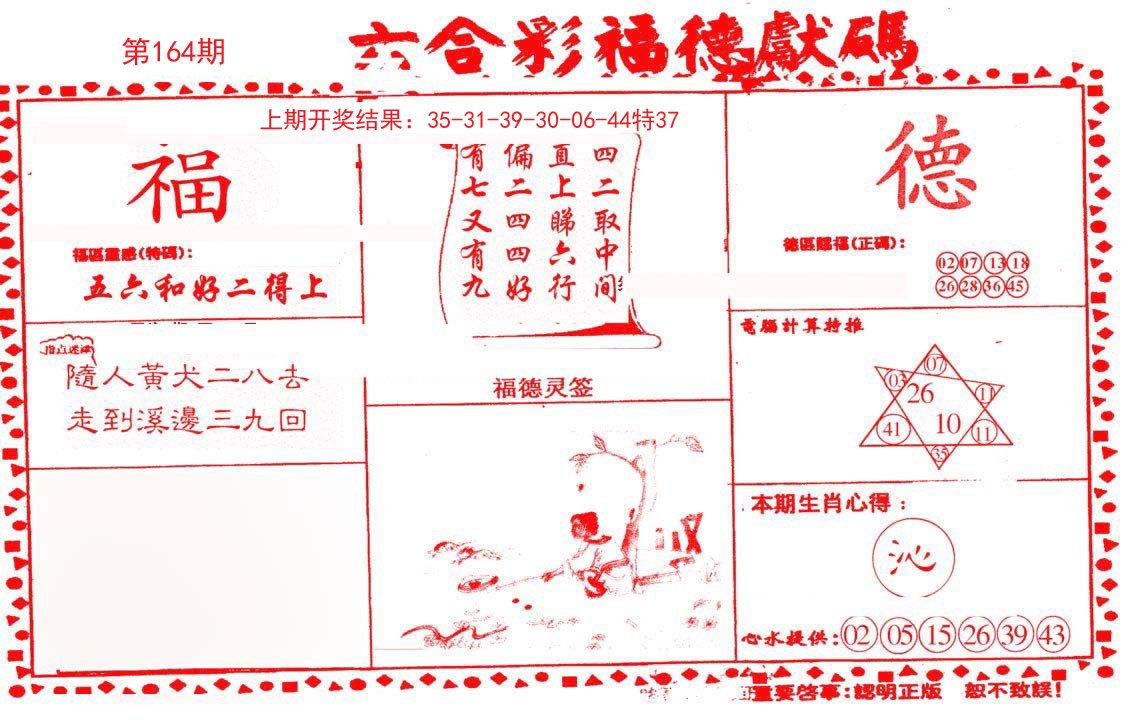 六合彩福德獻碼
第164期
上期开奖结果：35-31-39-30-06-44特37
福
福區靈感(特碼)：
五六和好二得上
指点迷津
隨人黃犬二八去
走到溪邊三九回
四二取中间
直上睇六行
偏二四四好
有七又有九
福德灵签
德
德區賜福(正碼)：
02 07 13 18
26 28 36 45
電腦計算特推
07
03 26 11
41 10 11
35
本期生肖心得：
沁
心水提供：02 05 15 26 39 43
重要啓事：認明正版 恕不致誤！